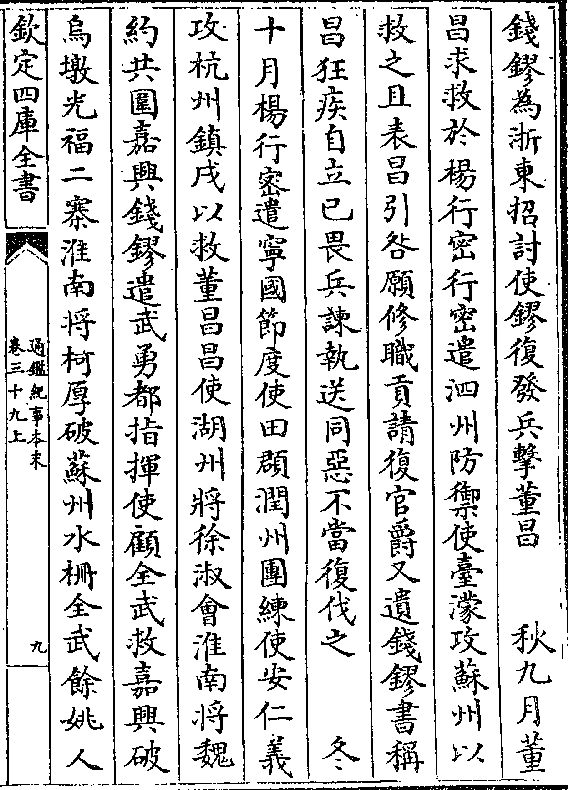 錢鏐為浙東招討使鏐復發兵擊董昌　秋九月董
昌求救於楊行密行密遣泗州防禦使臺濛攻蘇州以
救之且表昌引咎願修職貢請復官爵又遺錢鏐書稱
昌狂疾自立已畏兵諫執送同惡不當復伐之　冬
十月楊行密遣寧國節度使田頵潤州團練使安仁義
攻杭州鎮戍以救董昌昌使湖州將徐淑會淮南將魏
約共圍嘉興錢鏐遣武勇都指揮使顧全武救嘉興破
烏墩光福二寨淮南將柯厚破蘇州水柵全武餘姚人
欽定四庫全書
通鑑紀事本末
卷三十九上
九